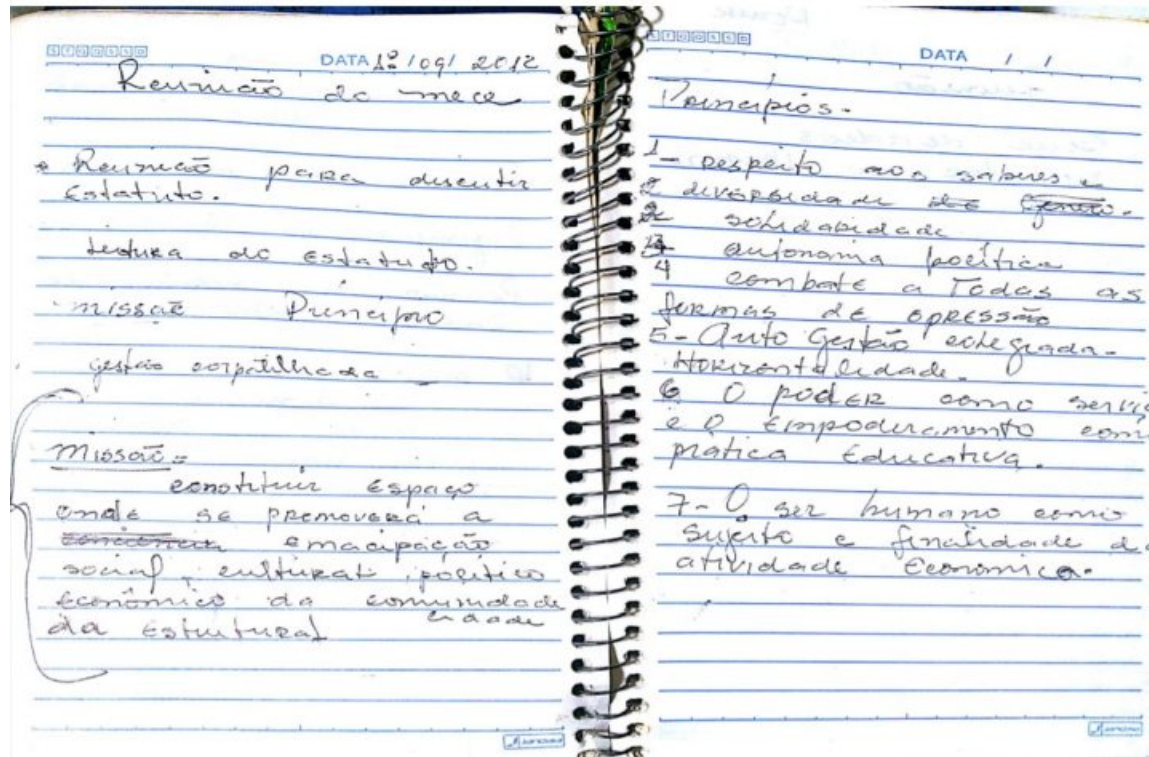 DATA 1º / 09 / 2012
Reunião do mece
Reunião para discutir
Estatuto.
Leitura do Estatuto.
missão Principio
gestão corpatilhada
Missão =
constituir Espaço
onde se promoverá a
emacipação
social, cultural, político
econômico da comunidade
cidade
da Estrutural
DATA / /
Principios -
1- respeito aos saberes e
diversidade
solidariedade
autonomia política
4 combate a Todas as
formas de opressão
5- Auto Gestão
Horizontalidade.
6 O poder como serviç
e o Empoderamento com
prática Educativa.
7- O ser humano como
sujeito e finalidade d
atividade Econômica.